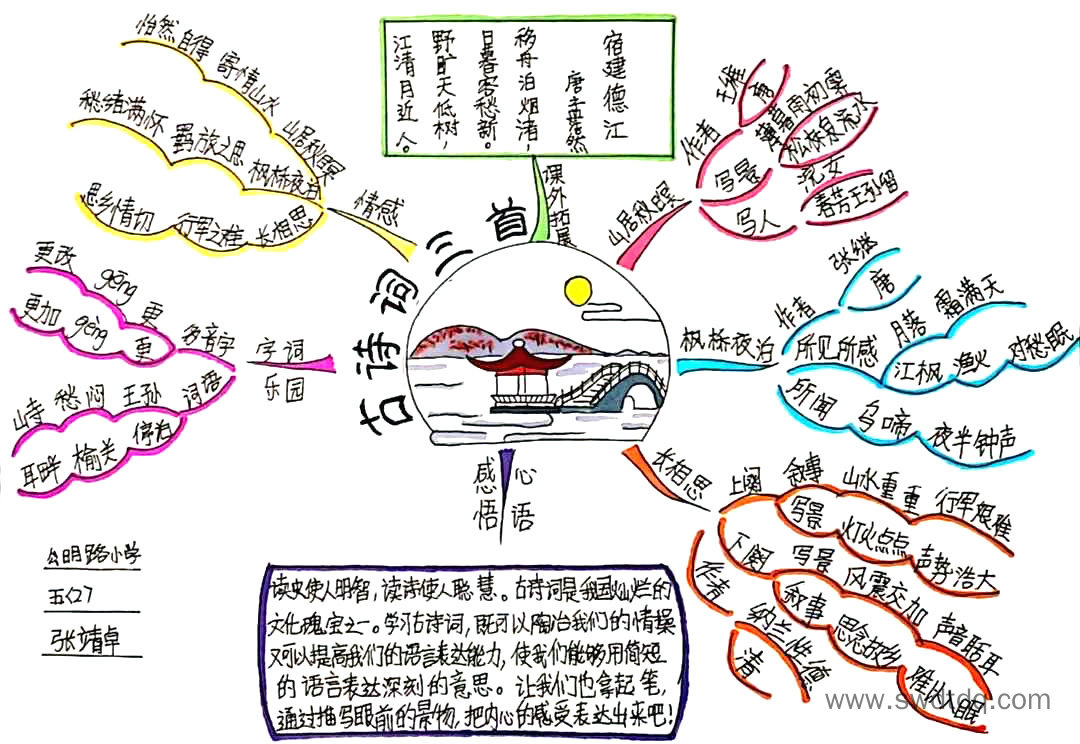 古诗词三首
课外拓展
宿建德江
唐孟浩然
移舟泊烟渚，
日暮客愁新。
野旷天低树，
江清月近人
山居秋暝
作者
王维
唐
写景
薄暮雨初霁
松林泉流水
写人
浣女
春芳王孙留
枫桥夜泊
作者
张继
唐
所见所感
月落
霜满天
江枫
渔火
对愁眠
所闻
乌啼
夜半钟声
长相思
上阕
叙事
山水重重
行军艰难
写景
灯火点点
声势浩大
下阕
写景
风震交加
声音聒耳
叙事
思念故乡
难以入眠
作者
纳兰性德
清
感悟
心语
读史使人明智，读诗使人聪慧。古诗词是我国灿烂的
文化瑰宝之一。学习古诗词，既可以陶冶我们的情操
又可以提高我们的语言表达能力，使我们能够用简短
的语言表达深刻的意思。让我们也拿起笔，
通过描写眼前的景物，把内心的感受表达出来吧！
字词
乐园
多音字
更改 gēng 更
更加 gèng 更
词语
山寺 愁闷 王孙
耳畔 榆关
情感
山居秋暝
寄情山水
怡然自得
枫桥夜泊
羁旅之思
愁绪满怀
长相思
行军之难
思乡情切
公明路小学
五〈27
张靖卓
www.swdtdq.com